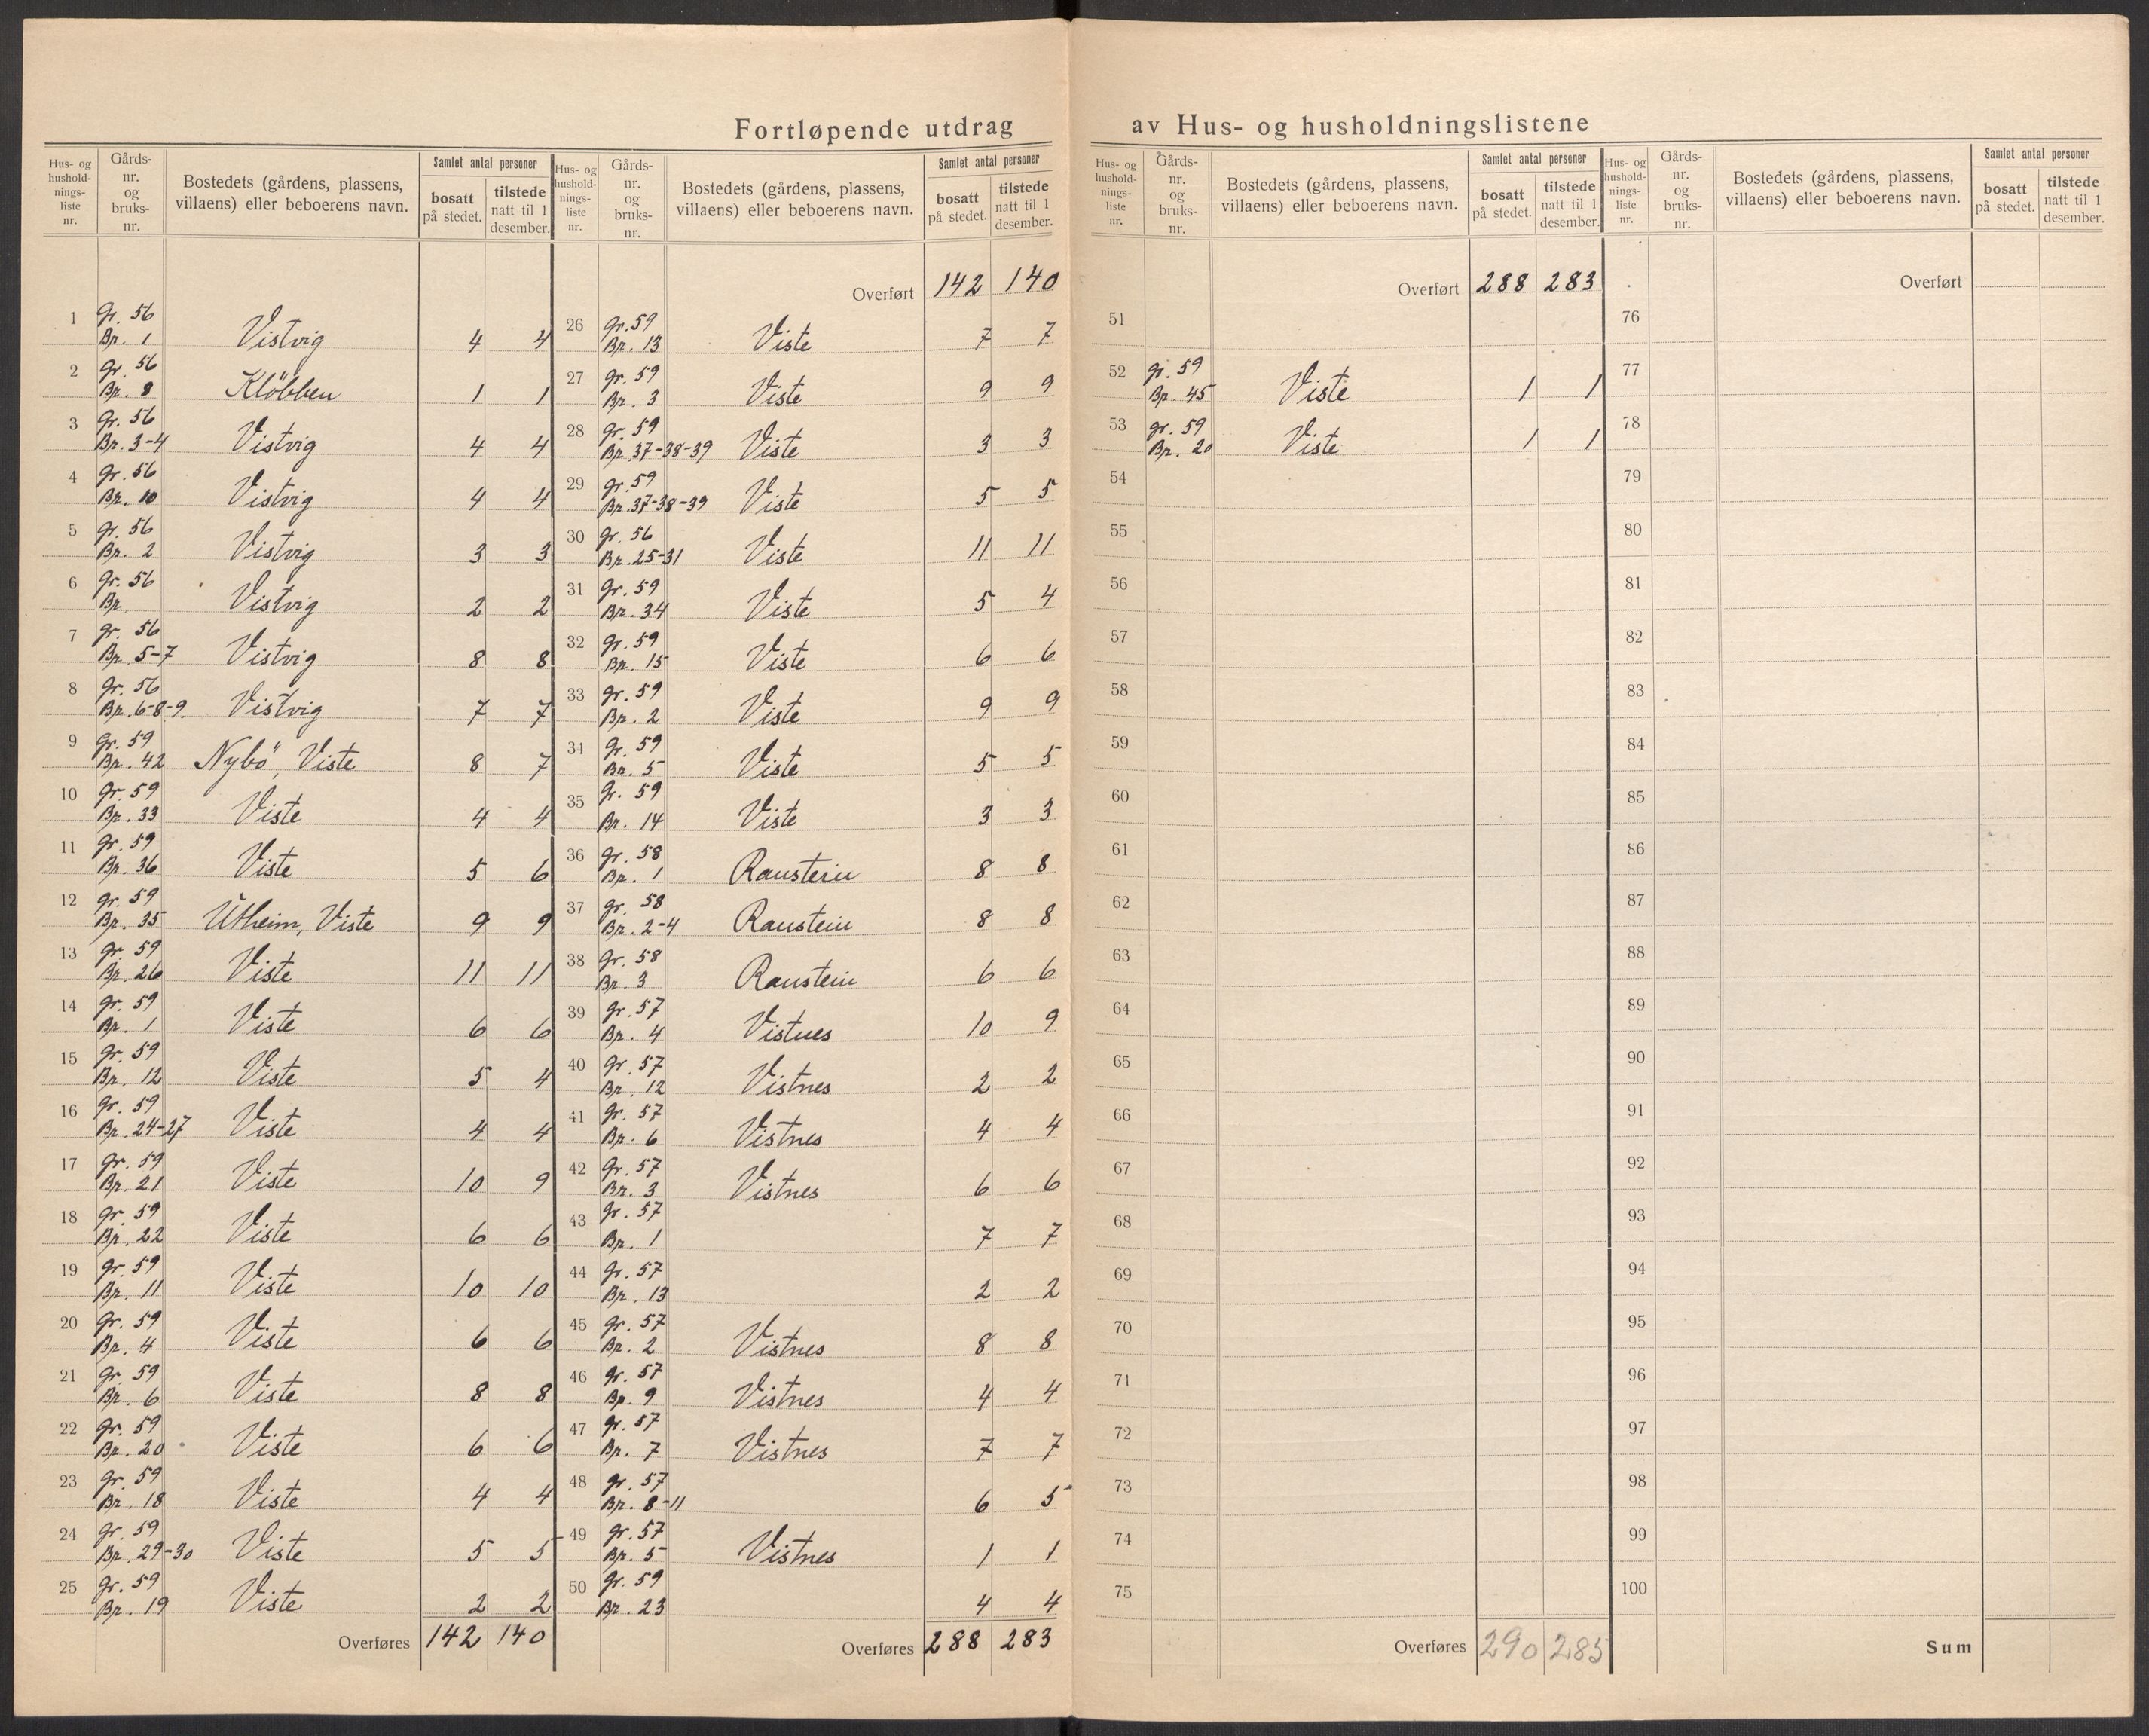 Fortløpende utdrag av Hus- og husholdningslistene
Hus- og hushold- nings- liste nr. | Gårds- nr. og bruks- nr. | Bostedets (gårdens, plassens, villaens) eller beboerens navn. | Samlet antal personer | bosatt på stedet. | tilstede natt til 1 desember.
1 Gr. 56 Br. 1 Vistvig 4 4
2 Gr. 56 Br. 8 Klöbben 1 1
3 Gr. 56 Br. 3-4 Vistvig 4 4
4 Gr. 56 Br. 10 Vistvig 4 4
5 Gr. 56 Br. 2 Vistvig 3 3
6 Gr. 56 Br. Vistvig 2 2
7 Gr. 56 Br. 5-7 Vistvig 8 8
8 Gr. 56 Br. 6-8-9. Vistvig 7 7
9 Gr. 59 Br. 42 Nybö, Viste 8 7
10 Gr. 59 Br. 33 Viste 4 4
11 Gr. 59 Br. 36 Viste 5 6
12 Gr. 59 Br. 35 Utheim, Viste 9 9
13 Gr. 59 Br. 26 Viste 11 11
14 Gr. 59 Br. 1 Viste 6 6
15 Gr. 59 Br. 12 Viste 5 4
16 Gr. 59 Br. 24-27 Viste 4 4
17 Gr. 59 Br. 21 Viste 10 9
18 Gr. 59 Br. 22 Viste 6 6
19 Gr. 59 Br. 11 Viste 10 10
20 Gr. 59 Br. 4 Viste 6 6
21 Gr. 59 Br. 6 Viste 8 8
22 Gr. 59 Br. 20 Viste 6 6
23 Gr. 59 Br. 18 Viste 4 4
24 Gr. 59 Br. 29-30 Viste 5 5
25 Gr. 59 Br. 19 Viste 2 2
Overføres 142 140
Hus- og hushold- nings- liste nr. | Gårds- nr. og bruks- nr. | Bostedets (gårdens, plassens, villaens) eller beboerens navn. | Samlet antal personer | bosatt på stedet. | tilstede natt til 1 desember.
Overført 142 140
26 Gr. 59 Br. 13 Viste 7 7
27 Gr. 59 Br. 3 Viste 9 9
28 Gr. 59 Br. 37-38-39 Viste 3 3
29 Gr. 59 Br. 37-38-39 Viste 5 5
30 Gr. 56 Br. 25-31 Viste 11 11
31 Gr. 59 Br. 34 Viste 5 4
32 Gr. 59 Br. 15 Viste 6 6
33 Gr. 59 Br. 2 Viste 9 9
34 Gr. 59 Br. 5 Viste 5 5
35 Gr. 59 Br. 14 Viste 3 3
36 Gr. 58 Br. 1 Raustein 8 8
37 Gr. 58 Br. 2-4 Raustein 8 8
38 Gr. 58 Br. 3 Raustein 6 6
39 Gr. 57 Br. 4 Vistnes 10 9
40 Gr. 57 Br. 12 Vistnes 2 2
41 Gr. 57 Br. 6 Vistnes 4 4
42 Gr. 57 Br. 3 Vistnes 6 6
43 Gr. 57 Br. 1 7 7
44 Gr. 57 Br. 13 2 2
45 Gr. 57 Br. 2 Vistnes 8 8
46 Gr. 57 Br. 9 Vistnes 4 4
47 Gr. 57 Br. 7 Vistnes 7 7
48 Gr. 57 Br. 8-11 6 5
49 Gr. 57 Br. 5 Vistnes 1 1
50 Gr. 59 Br. 23 4 4
Overføres 288 283
Hus- og hushold- nings- liste nr. | Gårds- nr. og bruks- nr. | Bostedets (gårdens, plassens, villaens) eller beboerens navn. | Samlet antal personer | bosatt på stedet. | tilstede natt til 1 desember.
Overført 288 283
51
52 Gr. 59 Br. 45 Viste 1 1
53 Gr. 59 Br. 20 Viste 1 1
54
55
56
57
58
59
60
61
62
63
64
65
66
67
68
69
70
71
72
73
74
75
Overføres 290 285
Hus- og hushold- nings- liste nr. | Gårds- nr. og bruks- nr. | Bostedets (gårdens, plassens, villaens) eller beboerens navn. | Samlet antal personer | bosatt på stedet. | tilstede natt til 1 desember.
Overført
76
77
78
79
80
81
82
83
84
85
86
87
88
89
90
91
92
93
94
95
96
97
98
99
100
Sum